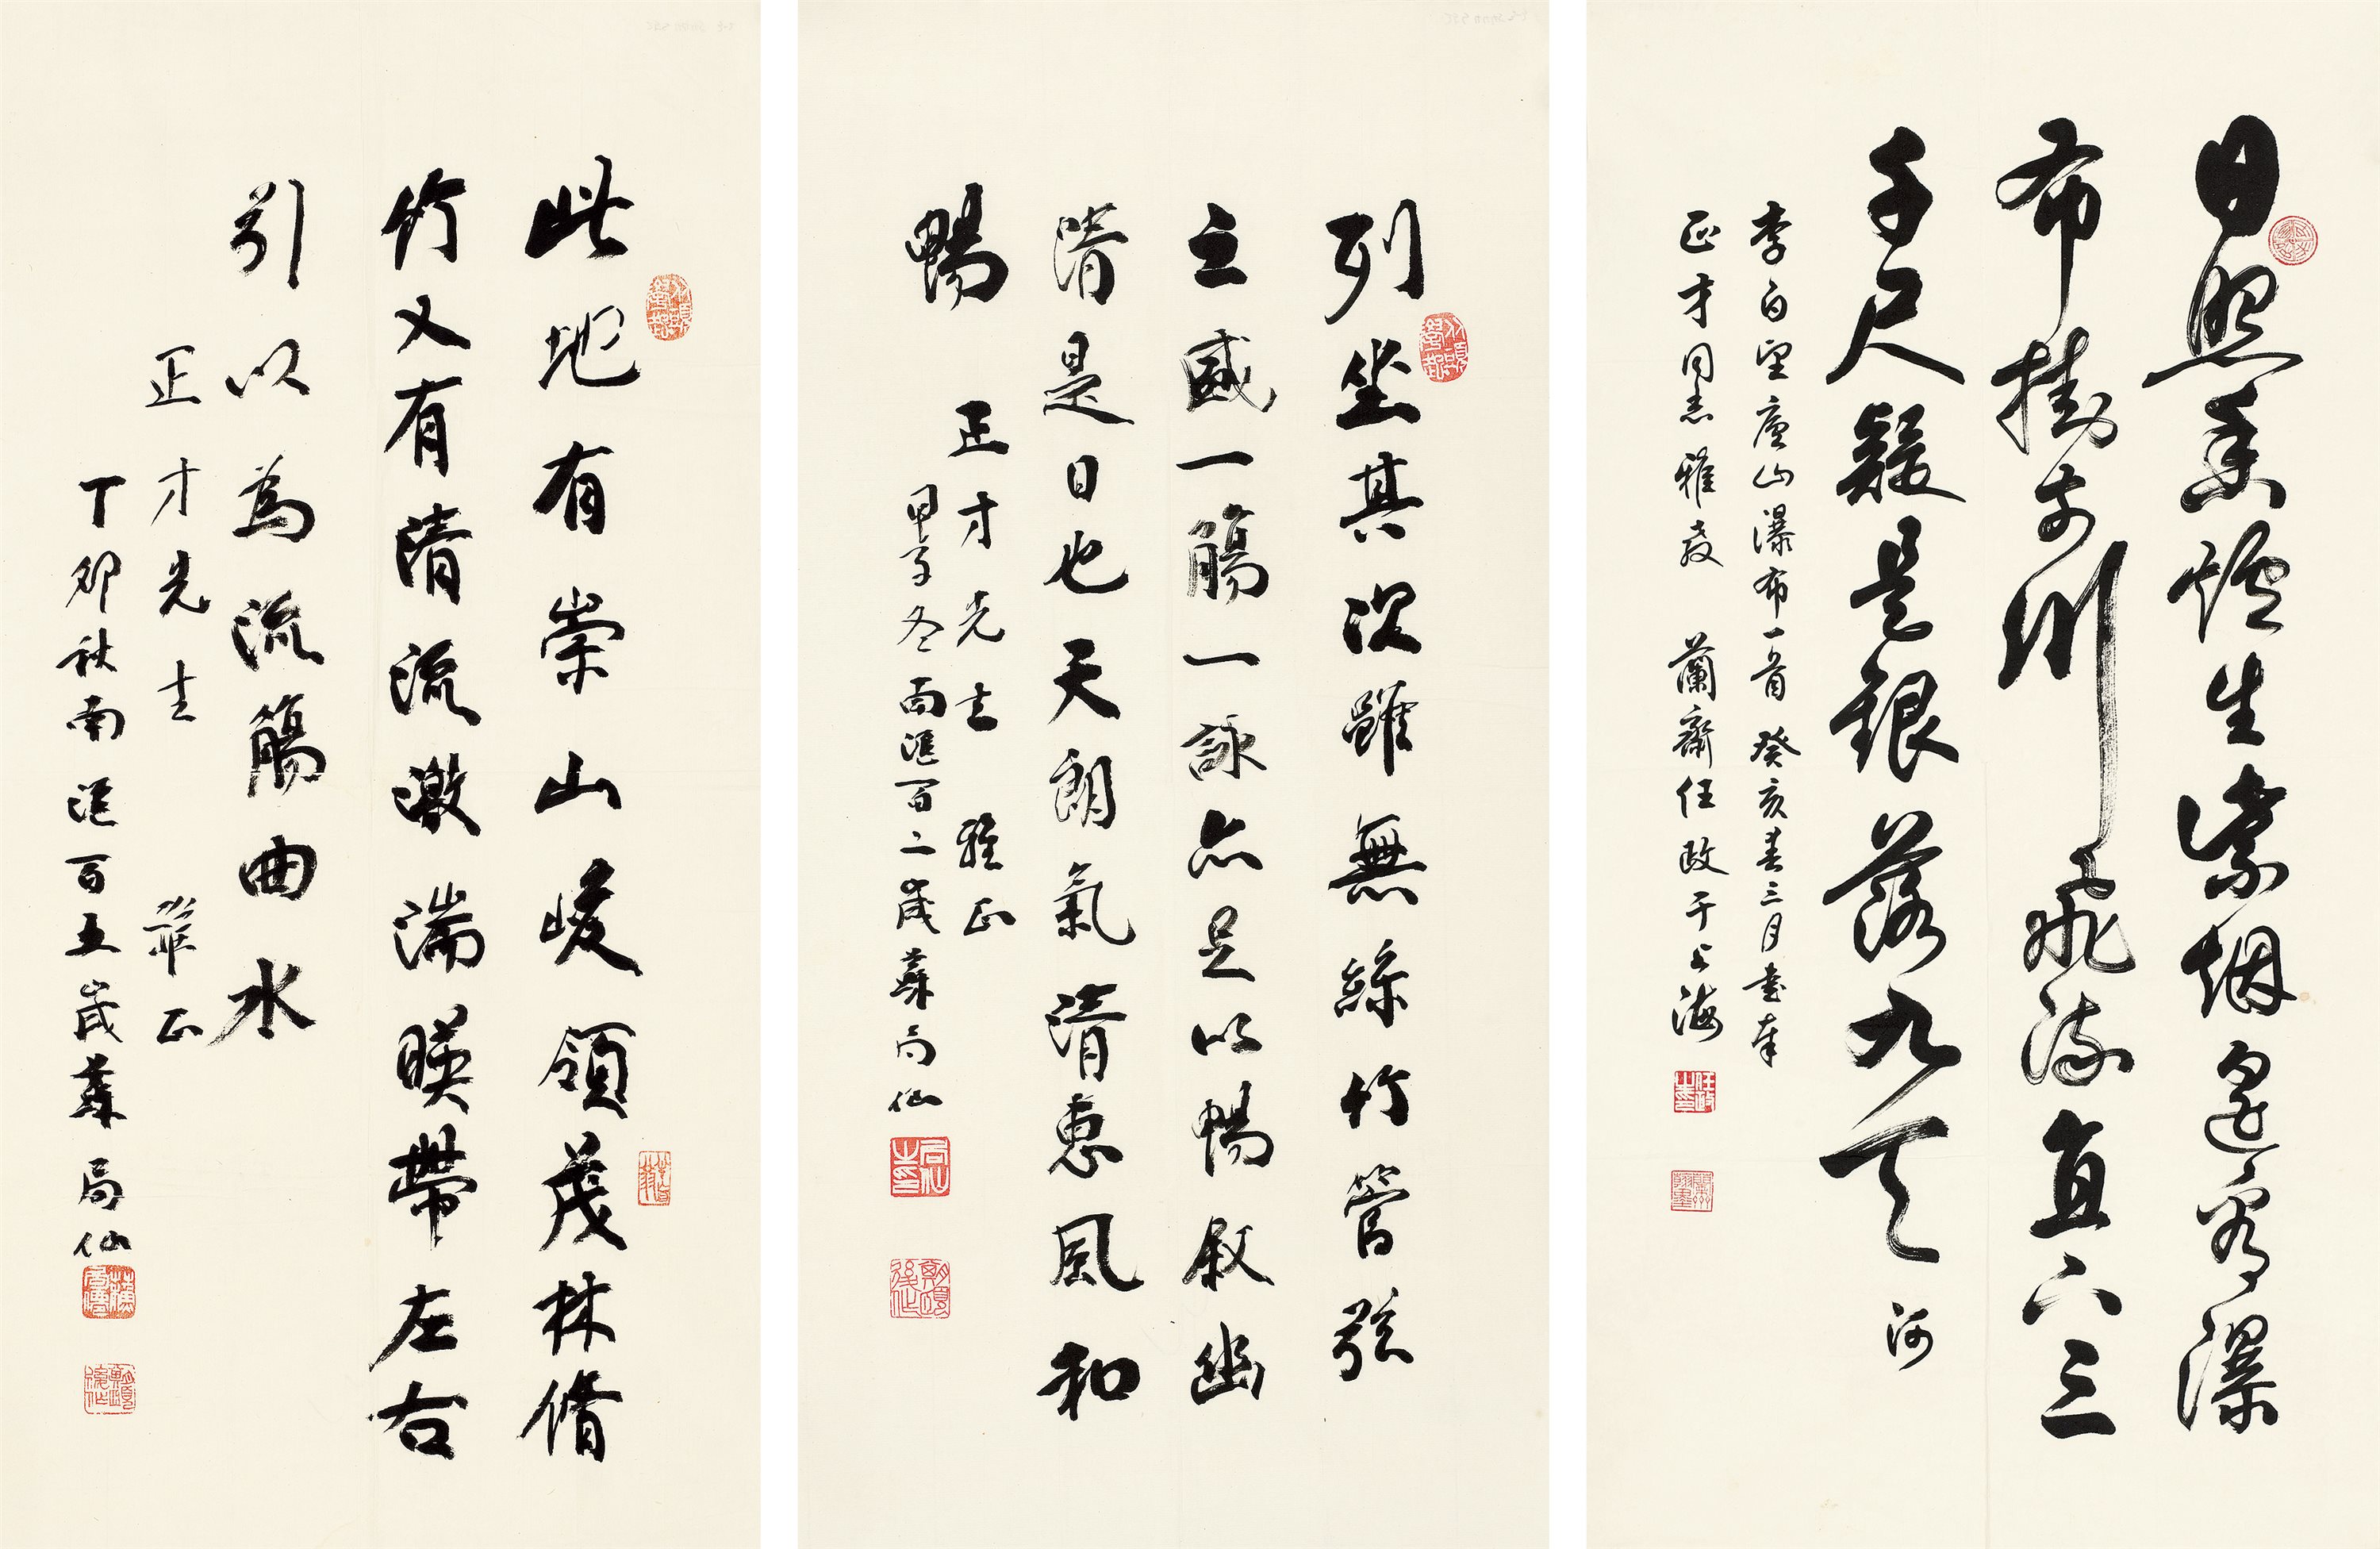 日照香爐生紫烟遥看瀑
布掛前川飛流直下三
千尺疑是銀落九天 河
李白望廬山瀑布一首 癸亥春三月書奉
正才同志雅教 蘭齋任政于上海
任政之印
列坐其次雖無絲竹管弦
之盛一觴一詠亦足以暢叙幽
清是日也天朗氣清惠風和
暢
正才先生 雅正
甲子冬南滙百二歲蘇局仙
局仙之印
此地有崇山峻領茂林脩
竹又有清流激湍暎帶左右
引以為流觴曲水
正才先生 雅正
丁卯秋南滙百五歲蘇局仙